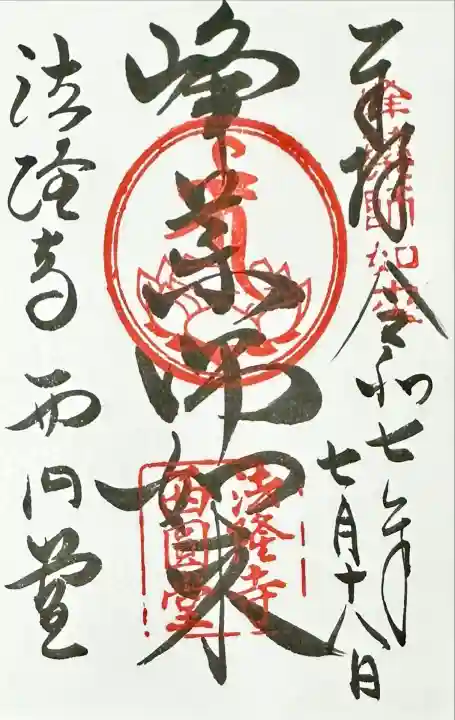 奉拝
令和七年
七月十八日
峰薬師如来
法隆寺
西圓堂
法隆寺 西円堂